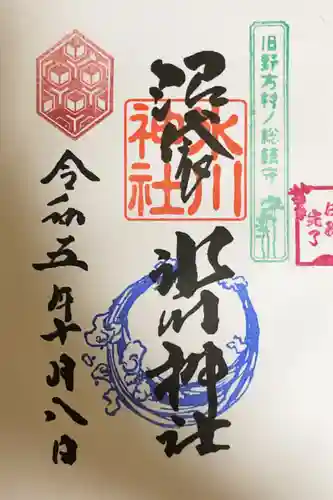 旧野方村ノ総鎮守
沼袋
氷川神社
氷川神社
令和五年十月八日
完了